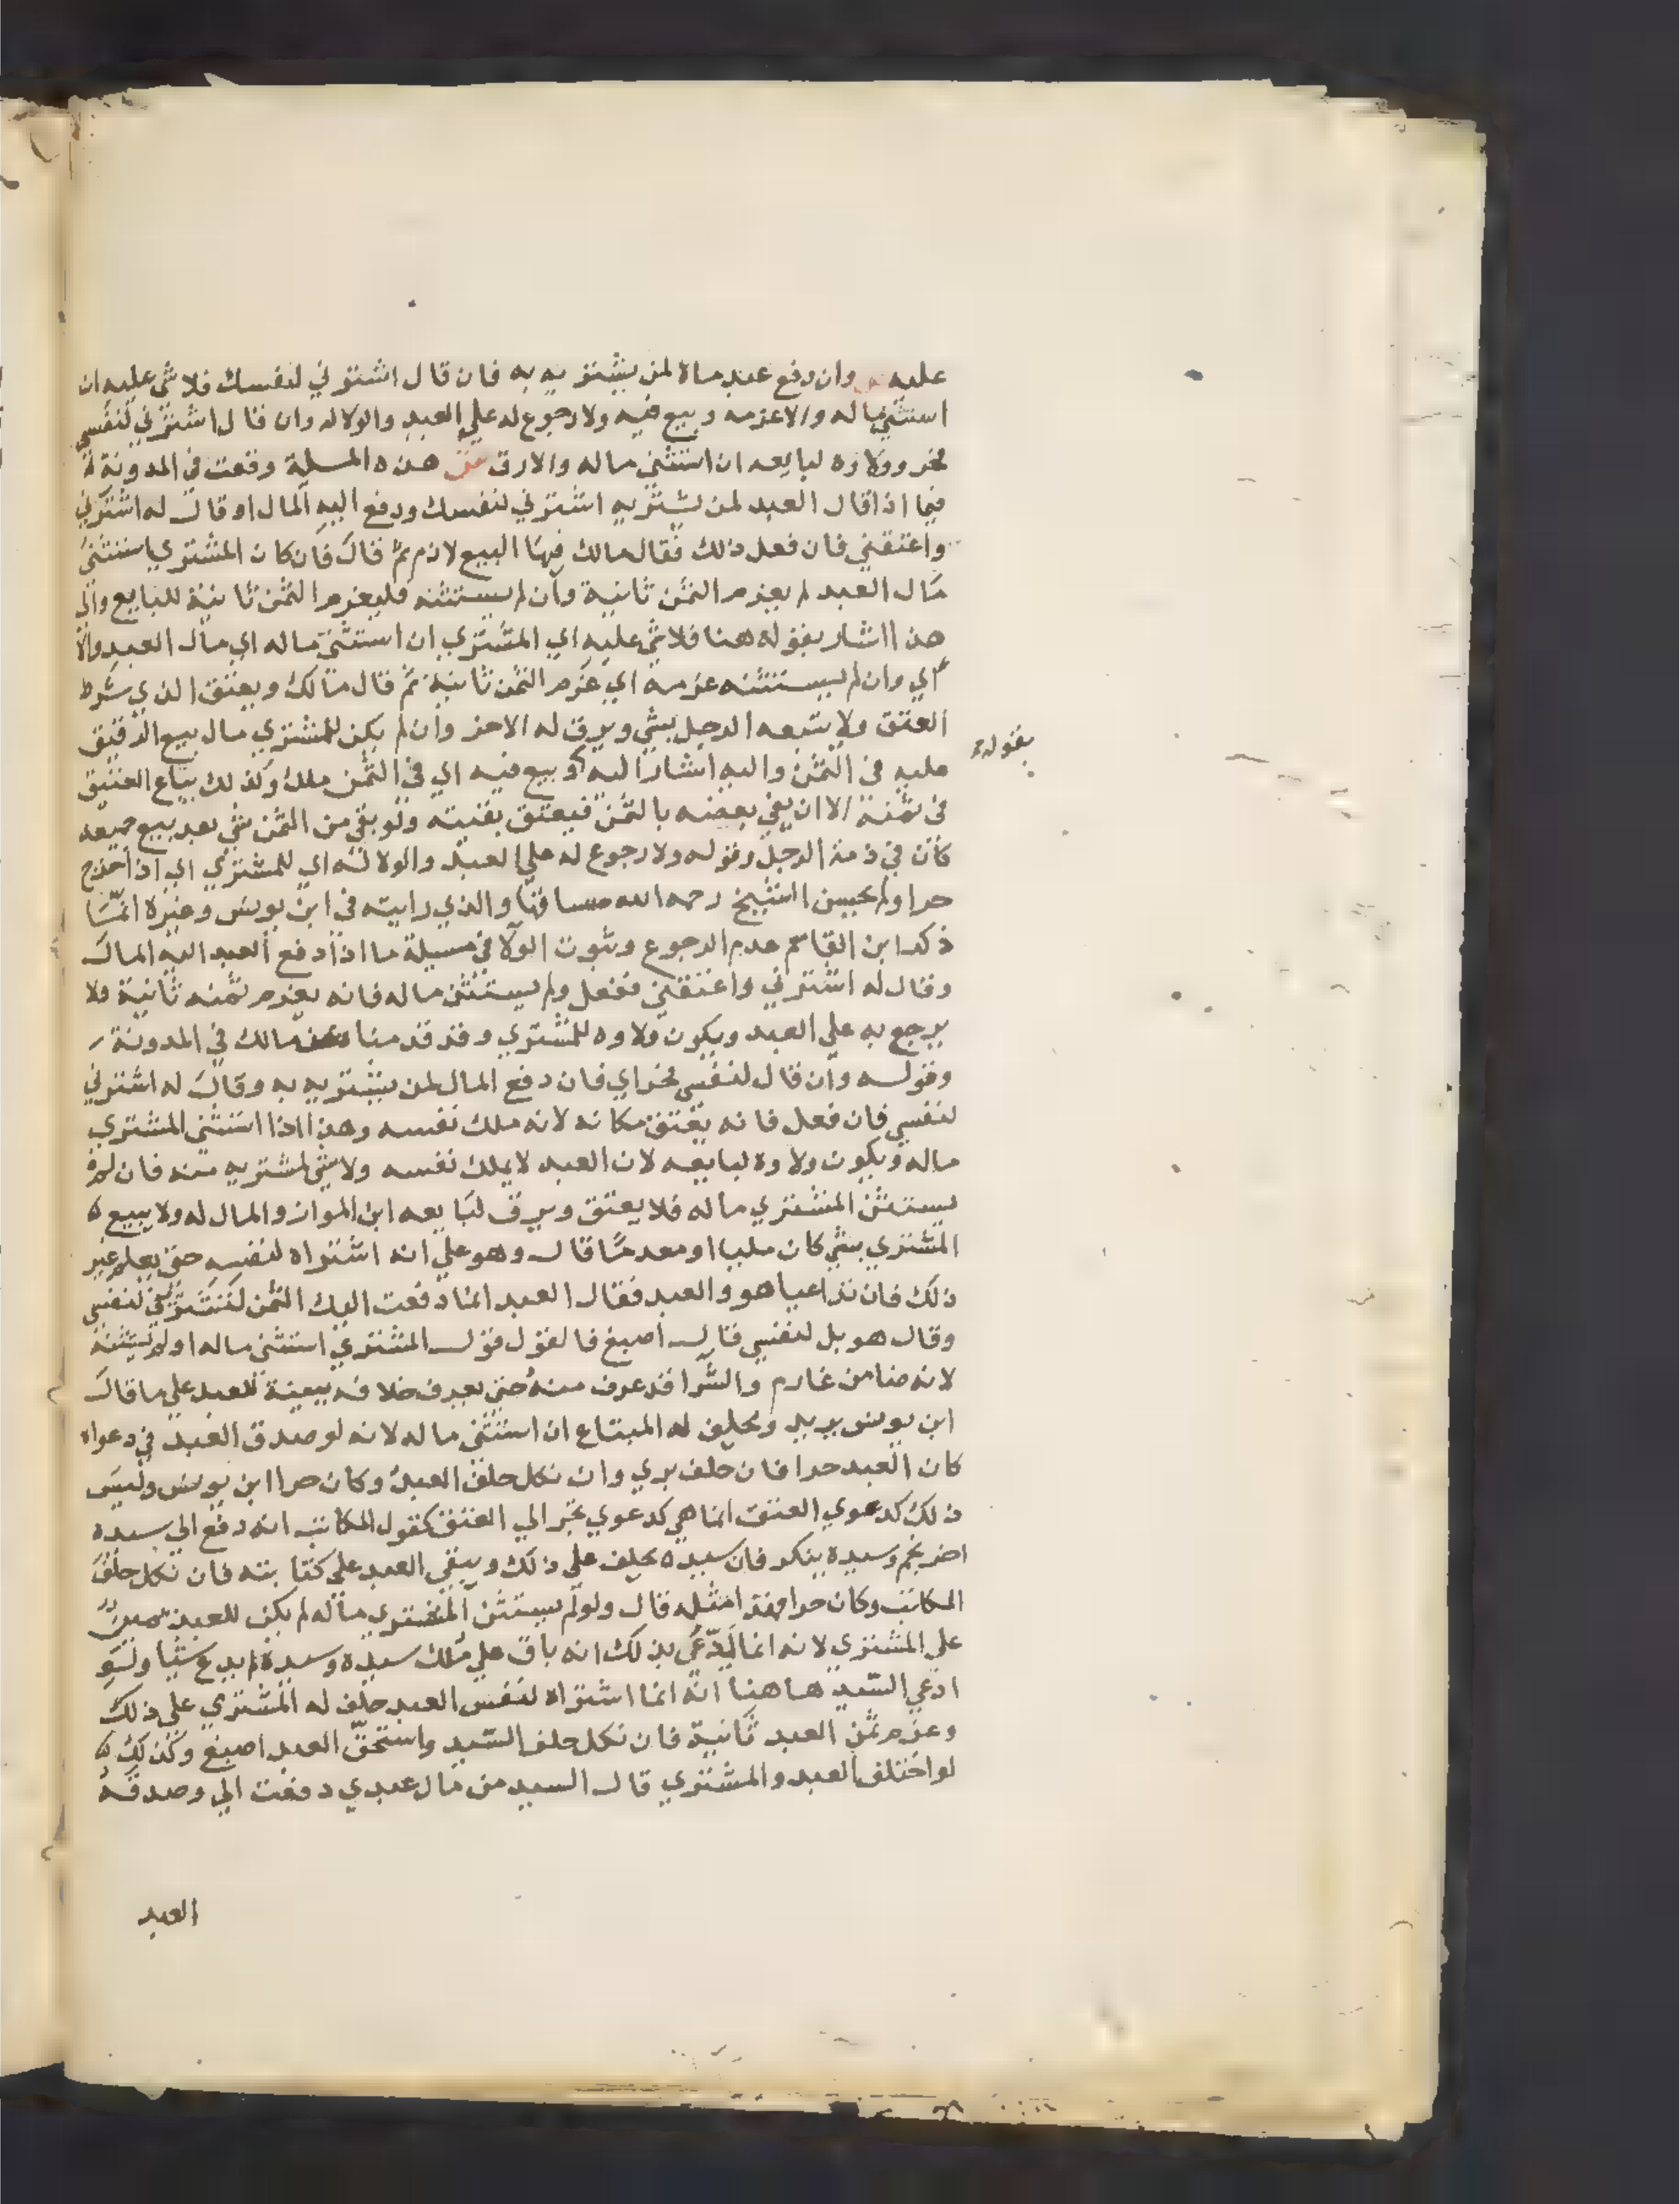 عليه ص وان دفع عبد مالا لمن يشتريه به فان قال اشترني لنفسك فلا شي عليه ان
استثني ماله والا غرمه وبيع فيه ولا رجوع له علي العبد والولا له وان قال اشترني لنفسي
فحر وولاوه لبايعه ان استثني ماله والا رق ش هذه المسيلة وقعت في المدونة
فيما اذا قال العبد لمن يشتريه اشترني لنفسك ودفع اليه المال او قال له اشترني
واعتقني فان فعل ذلك فقال مالك فيها البيع لازم ثم قال فان كان المشتري استثني
مال العبد لم يغرم الثمن ثانية وان لم يستثنه فليغرم الثمن ثانية للبايع والي
هذا اشار بقوله هنا فلا شي عليه اي المشتري ان استثني ماله اي مال العبد والا
اي وان لم يستثنه غرمه اي غرم الثمن ثانية ثم قال مالك ويعتق الذي شرط
العتق ولا يتبعه الرجل بشي ويرق له الاخر وان لم يكن للمشتري مال بيع الرقيق
عليه في الثمن واليه اشار بقوله وبيع فيه اي في الثمن ملك وكذلك يباع العتيق
في ثمنه الا ان يفي بعضه بالثمن فيعتق بقيته ولو بقي من الثمن شي بعد بيع جميعه
كان في ذمة الرجل وقوله ولا رجوع له علي العبد والولا له اي للمشتري اي اذا خرج
حرا ولم يحسن الشيخ رحمه الله مساقها والذي رايته في ابن يونس وغيره انما
ذكر ابن القاسم عدم الرجوع وثبوت الولا في مسيلة ما اذا دفع العبد اليه المال
وقال له اشترني واعتقني ففعل ولم يستثن ماله فانه يغرم ثمنه ثانية ولا
يرجع به علي العبد ويكون ولاوه للمشتري وقد قدمنا عن مالك في المدونة
وقوله وان قال لنفسي فحر اي فان دفع المال لمن يشتريه به وقال له اشترني
لنفسي فان فعل فانه يعتق مكانه لانه ملك نفسه وهذا اذا استثني المشتري
ماله ويكون ولاوه لبايعه لان العبد لا يملك نفسه ولا شي لمشتريه منه فان لم
يستثن المشتري ماله فلا يعتق ويرق لبايعه ابن المواز والمال له ولا يبيع
المشتري بشي كان مليا او معدما قال وهو علي انه اشتراه لنفسه حتي يعلم غير
ذلك فان تداعيا هو والعبد فقال العبد انما دفعت اليك الثمن لتشتريني لنفسي
وقال هو بل لنفسي قال اصبغ فالقول قول المشتري استثني ماله او لم يستثنه
لانه ضامن غارم والشرا قد عرف منه حتي يعرف خلافه ببينة للعبد علي ما قال
ابن يونس يريد ويحلف له المبتاع ان استثني ماله لانه لو صدق العبد في دعواه
كان العبد حرا فان حلف بري وان نكل حلف العبد وكان حرا ابن يونس وليس
ذلك كدعوي العتق انما هي كدعوي تجر الي العتق كقول المكاتب انه دفع الي سيده
اخر نجم وسيده ينكر فان سيده يحلف علي ذلك ويبقي العبد علي كتابته فان نكل حلف
المكاتب وكان حرا فهذا مثله قال ولو لم يستثن المشتري ماله لم يكن للعبد يمين
علي المشتري لانه انما يدعي بذلك انه باق علي ملك سيده وسيده لم يدع شيا ولو
ادعي السيد هاهنا انه انما اشتراه لنفس العبد حلف له المشتري علي ذلك
وغرم ثمن العبد ثانية فان نكل حلف السيد واستحق العبد اصبغ وكذلك
لو اختلف العبد والمشتري قال السيد من مال عبدي دفعت الي وصدقه
العبد